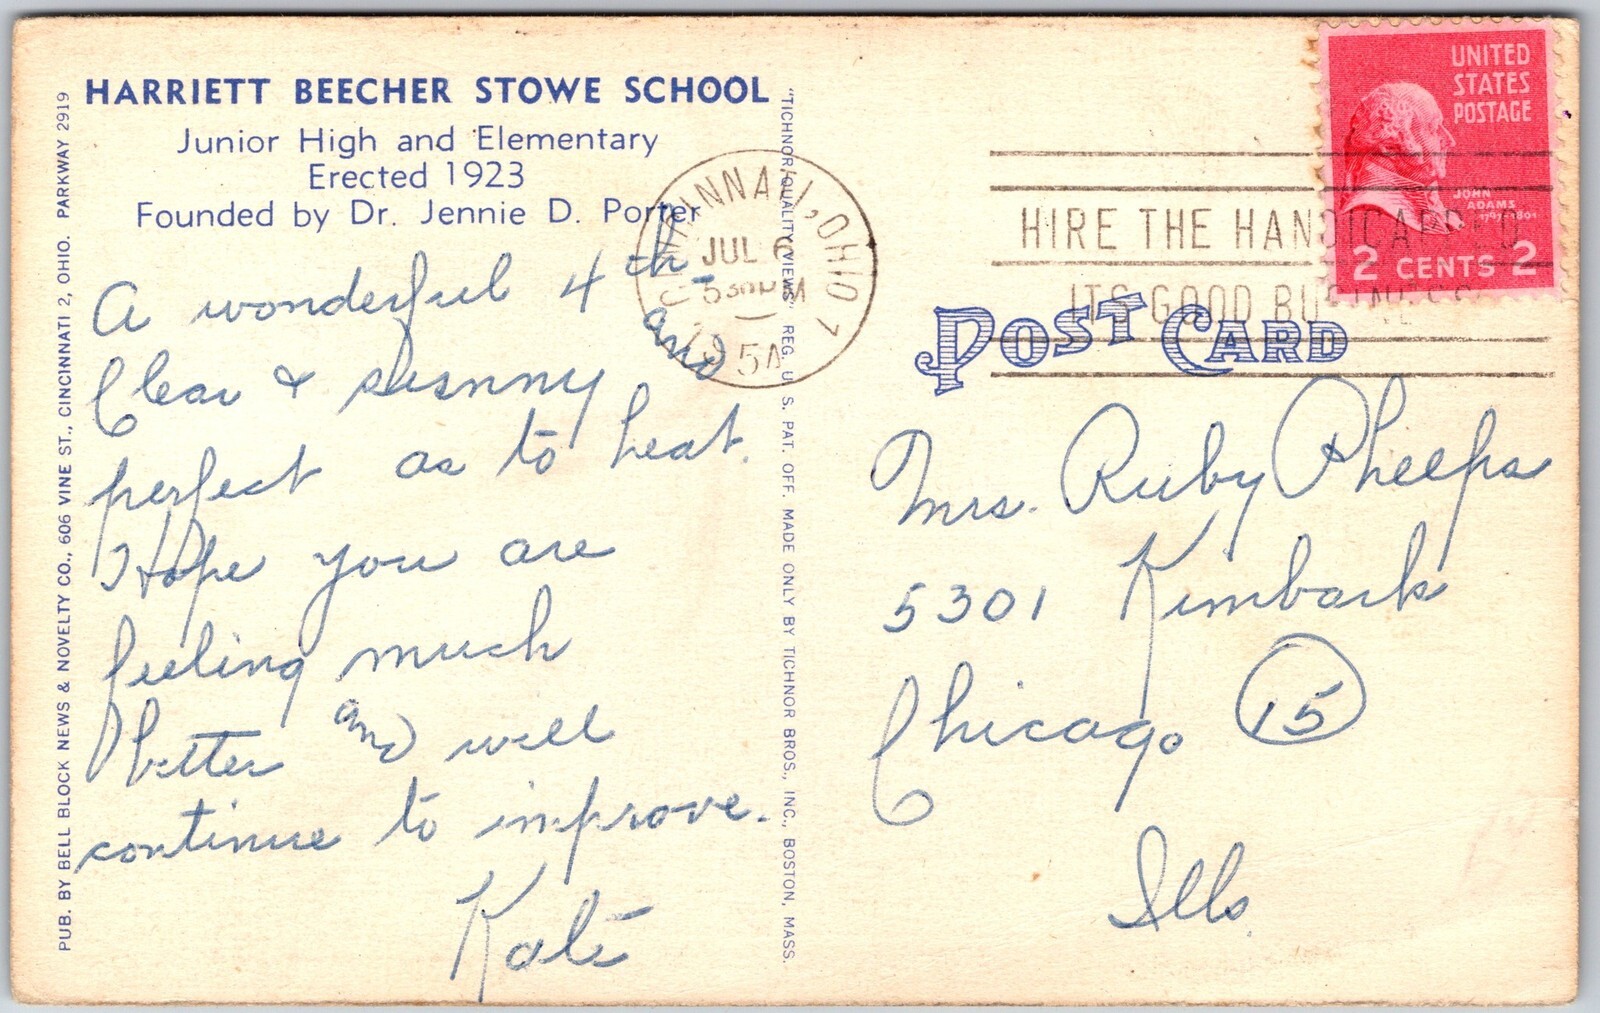 HARRIETT BEECHER STOWE SCHOOL
Junior High and Elementary
Erected 1923
Founded by Dr. Jennie D. Porter
A wonderful 4th
and
Clear & sunny
perfect as to heat.
Hope you are
feeling much
better and will
continue to improve.
Kate
PUB. BY BELL BLOCK NEWS & NOVELTY CO., 606 VINE ST., CINCINNATI 2, OHIO. PARKWAY 2919
"TICHNOR QUALITY VIEWS" REG. U. S. PAT. OFF. MADE ONLY BY TICHNOR BROS., INC., BOSTON, MASS.
CINCINNATI, OHIO 7
JUL 6
5 30 PM
195
HIRE THE HANDICAPPED
ITS GOOD BUSINESS
UNITED
STATES
POSTAGE
JOHN
ADAMS
1797-1801
2 CENTS 2
POST CARD
Mrs. Ruby Pheeps
5301 Kimbark
Chicago 15
Ills.